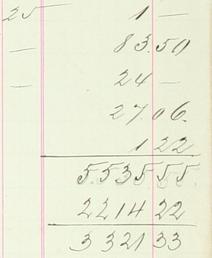 25 1 —
— 83.50
— 24 —
27.06.
1 22
5535 55
2214 22
3321 33